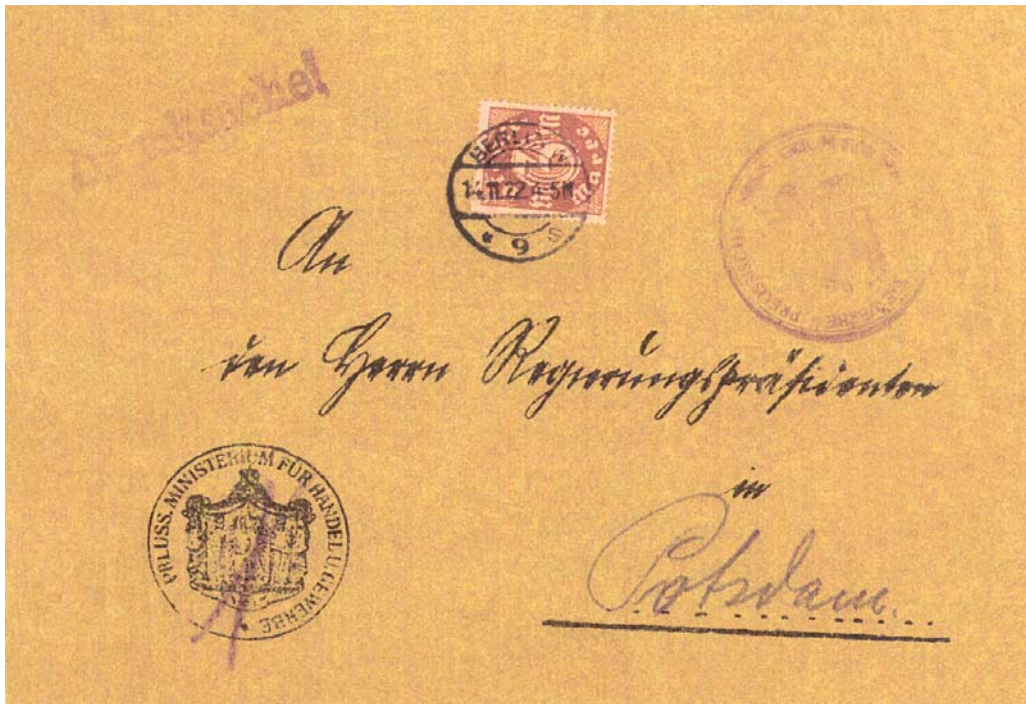 BERLIN W
14.11.22.4-5N
* 9 s
An
den Herrn Regierungspräsidenten
in
Potsdam.
PREUSS. MINISTERIUM FÜR HANDEL U. GEWERBE